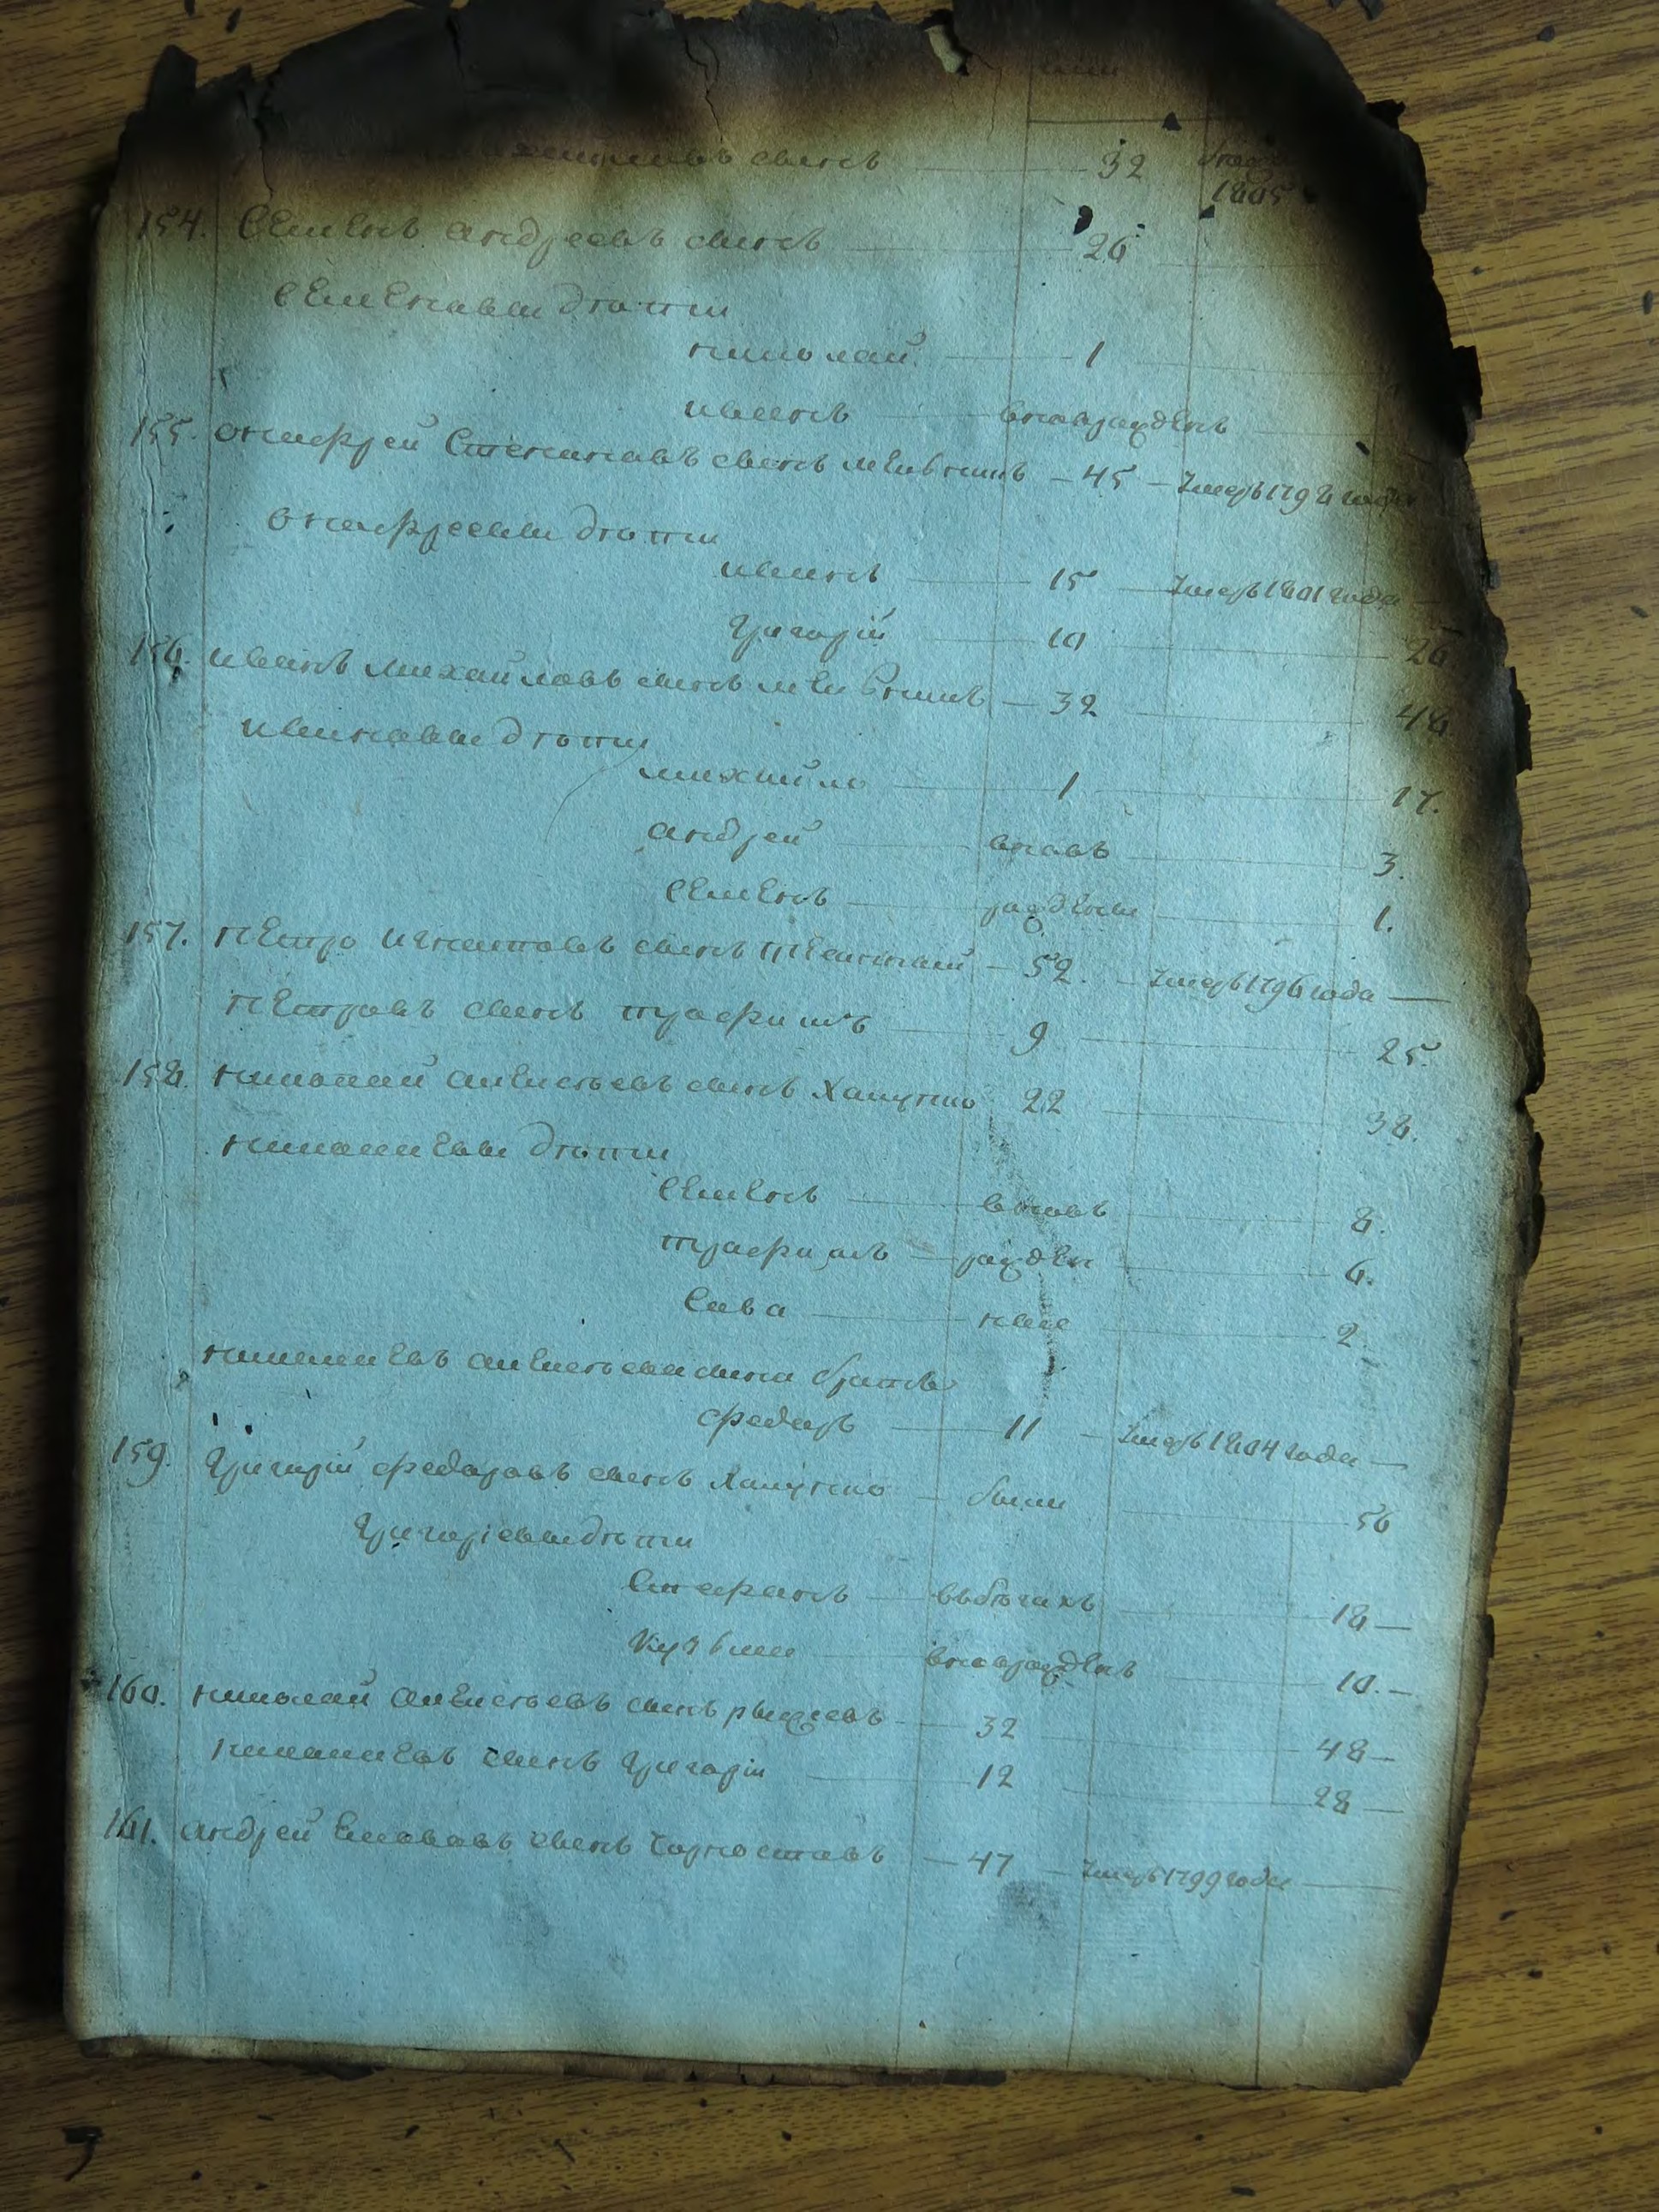 сынъ 32
1805
154. Семенъ андреевъ сынъ 26
Семеновы дѣти
николай 1
иванъ вновьрожденъ
155. онафрей Степановъ сынъ 45 Умеръ 1798 года
онафреевы дѣти
иванъ 15 Умеръ 1801 года
Григорій 10 26
156. иванъ михайловъ сынъ 32 48
ивановы дѣти
михайло 1 17.
андрей вновь 3.
Семенъ рождены 1.
157. петро игнатовъ сынъ 52. Умеръ 1796 года
петровъ сынъ трофимъ 9 25.
158. николай алексѣевъ сынъ Хапунко 22 38.
николаевы дѣти
Семенъ вновь 8.
трофимъ рожден 6.
Сава ные 2.
николаевъ алексѣева сына братъ
федоръ 11 Умеръ 1804 года
159. Григорій федоровъ сынъ Хапунко были 56
Григоріевы дѣти
Стефанъ въбѣгахъ 18
Кузьма вновьрожденъ 10.
160. николай алексѣевъ сынъ рыжеевъ 32 48
николаевъ сынъ Григорій 12 28
161. андрей сынъ 47 Умеръ 1799 года